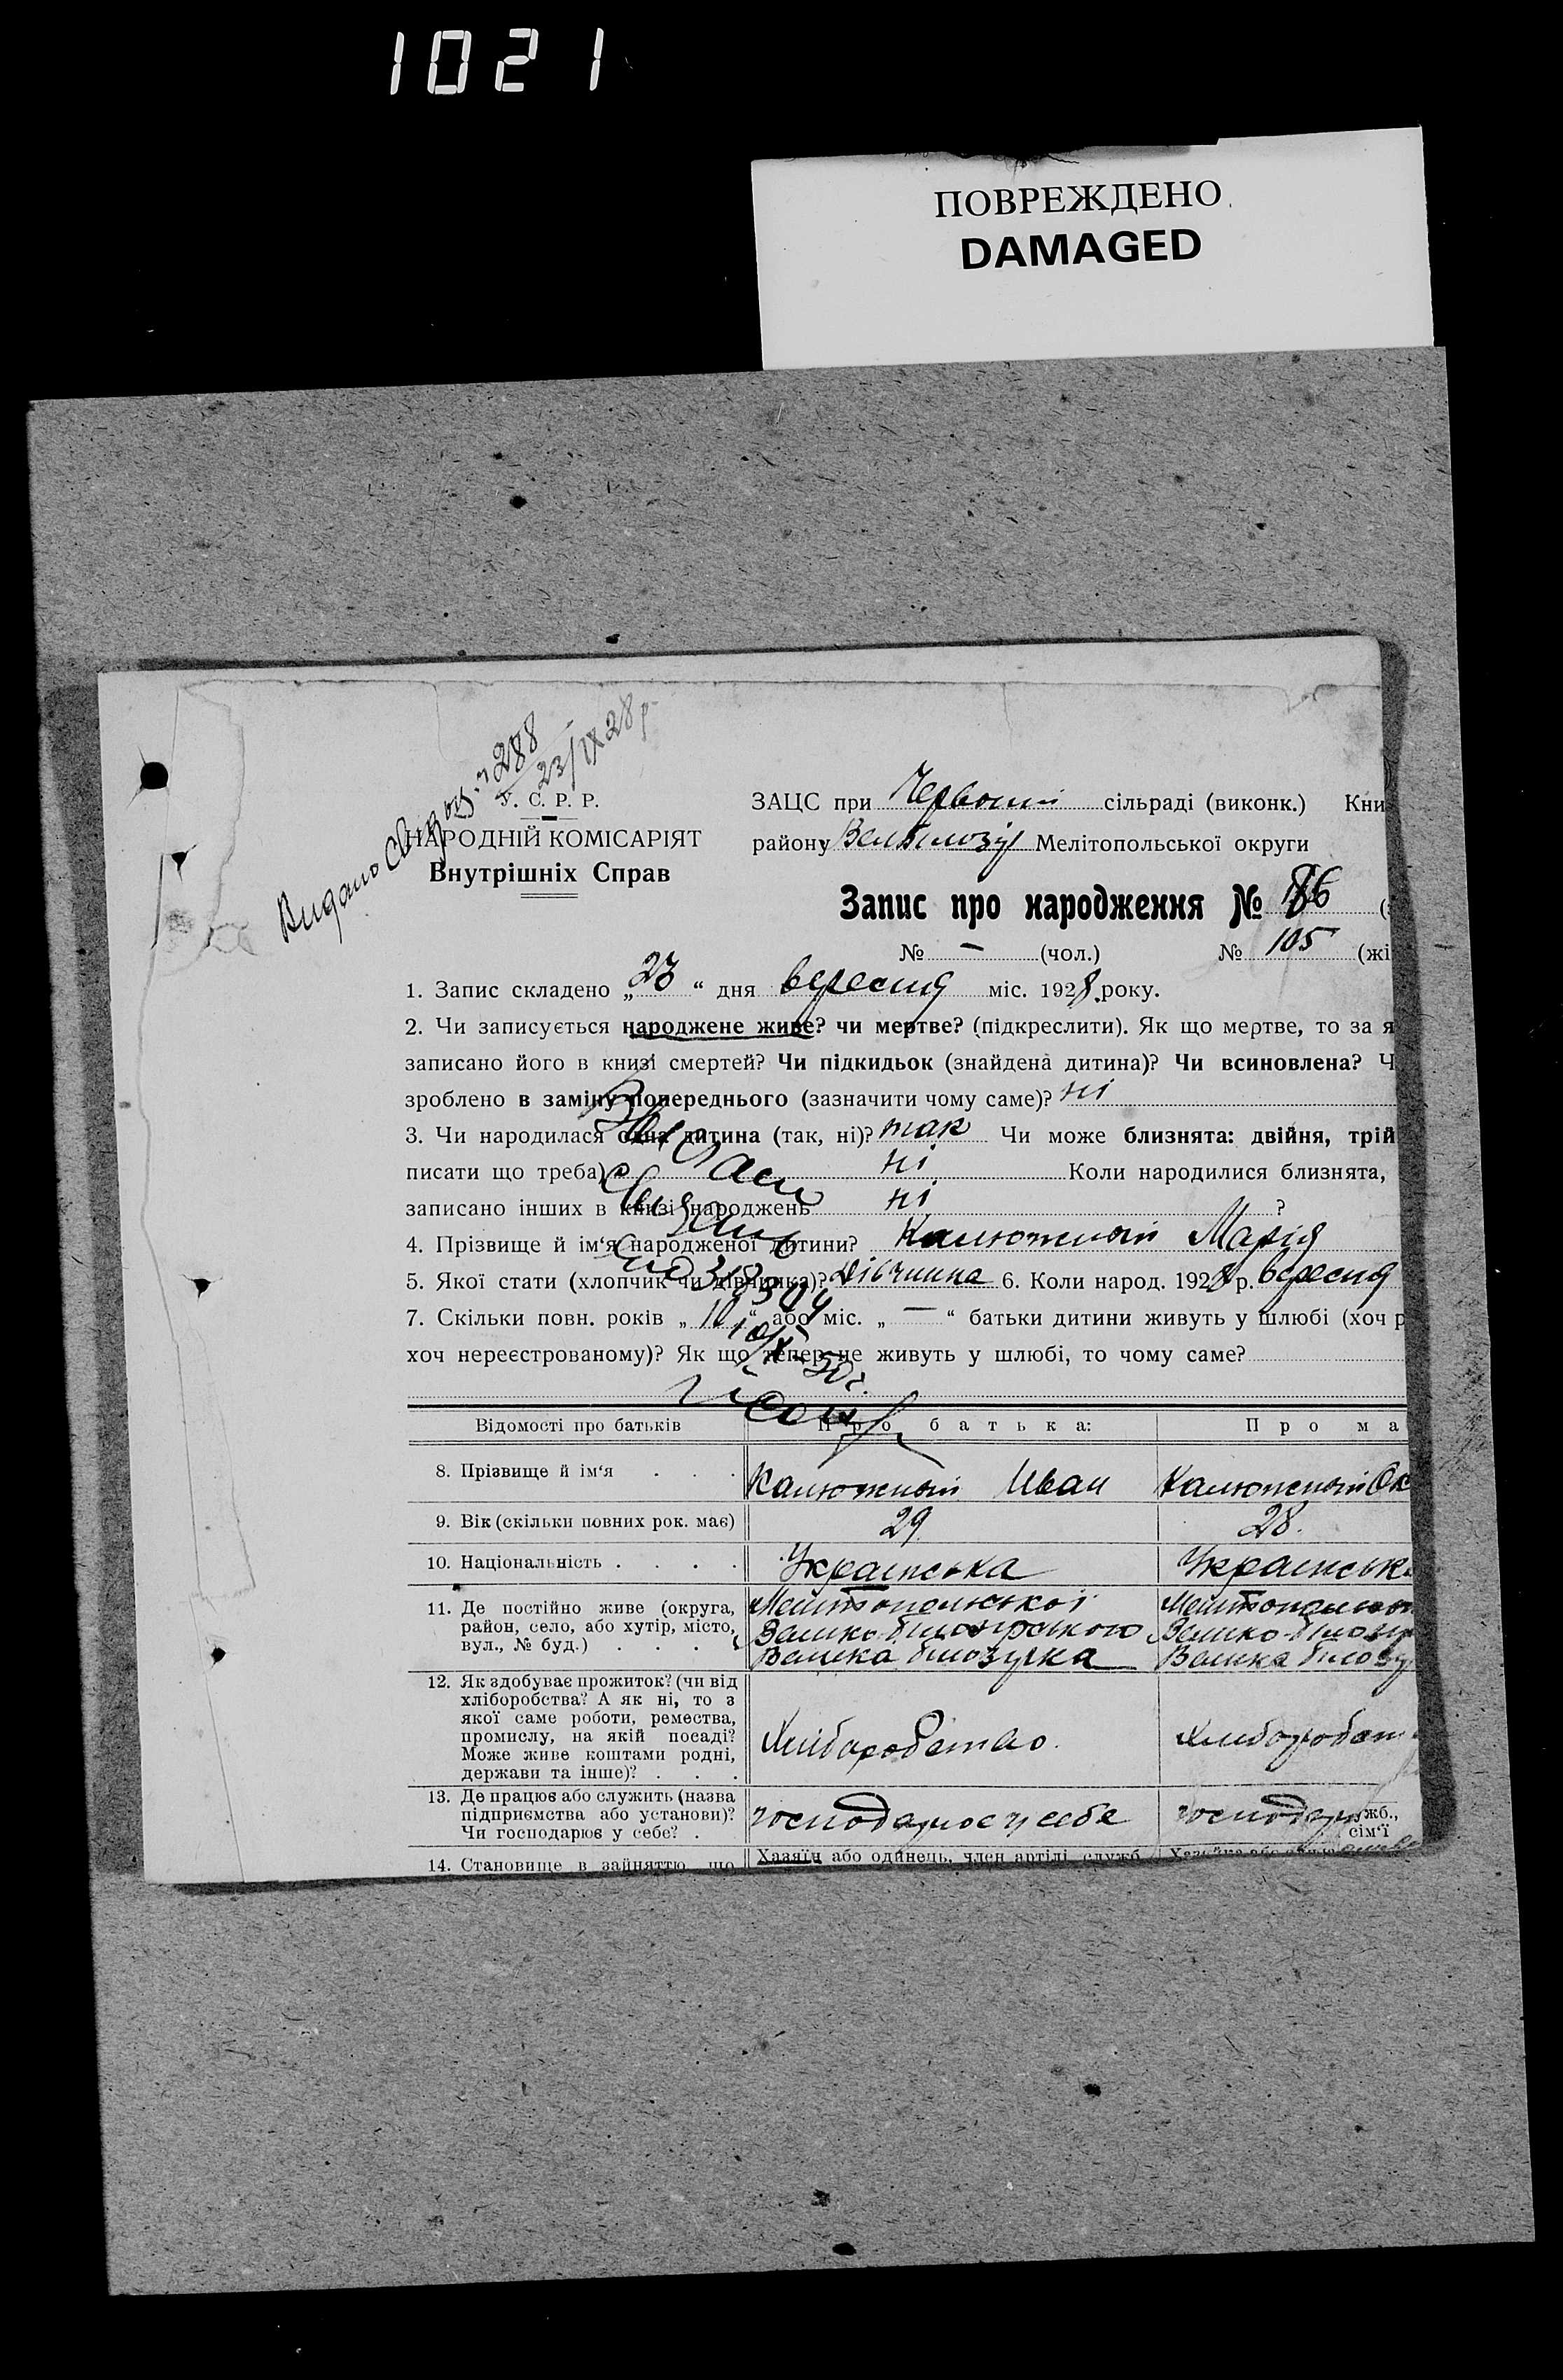 1021
ПОВРЕЖДЕНО
DAMAGED
Видано
288
23/IX 28 р
У. С. Р. Р.
НАРОДНІЙ КОМІСАРІЯТ
Внутрішніх Справ
ЗАЦС при сільраді (виконк.) Кни
району Мелітопольської округи
Запис про народження №
№ — (чол.) № 105 (жі
1. Запис складено „23“ дня вересня міс. 1928 року.
2. Чи записується народжене живе? чи мертве? (підкреслити). Як що мертве, то за я
записано його в книзі смертей? Чи підкидьок (знайдена дитина)? Чи всиновлена? Ч
зроблено в заміну попереднього (зазначити чому саме)? ні
3. Чи народилася одна дитина (так, ні)? так Чи може близнята: двійня, трій
писати що треба) ні Коли народилися близнята,
записано інших в книзі народжень ні ?
4. Прізвище й ім‘я народженої дитини? Калюжный Марія
5. Якої стати (хлопчик чи дівчинка)? Дівчинка 6. Коли народ. 1928 р. вересня
7. Скільки повн. років „10“ або міс. „—“ батьки дитини живуть у шлюбі (хоч р
хоч нереєстрованому)? Як що тепер не живуть у шлюбі, то чому саме?
Відомості про батьків Про батька: Про ма
8. Прізвище й ім‘я . . . Калюжный Иван Калюжный Ок
9. Вік (скільки повних рок. має) 29 28.
10. Національність . . . . Українська Українськ
11. Де постійно живе (округа, Мелітопольської Мелітопольськ
район, село, або хутір, місто, Велико-білозірського Велико-білозі
вул., № буд.) . . . . Велика білозірка Велика білозі
12. Як здобуває прожиток? (чи від
хліборобства? А як ні, то з
якої саме роботи, ремества,
промислу, на якій посаді? Хліборобство. хліборобст
Може живе коштами родні,
держави та інше)? . . .
13. Де працює або служить (назва
підприємства або установи)? господарює у себе господар
Чи господарює у себе? .
жб.,
сім‘ї
14. Становище в зайняттю, що Хазяїн або одинець, член артілі, служб